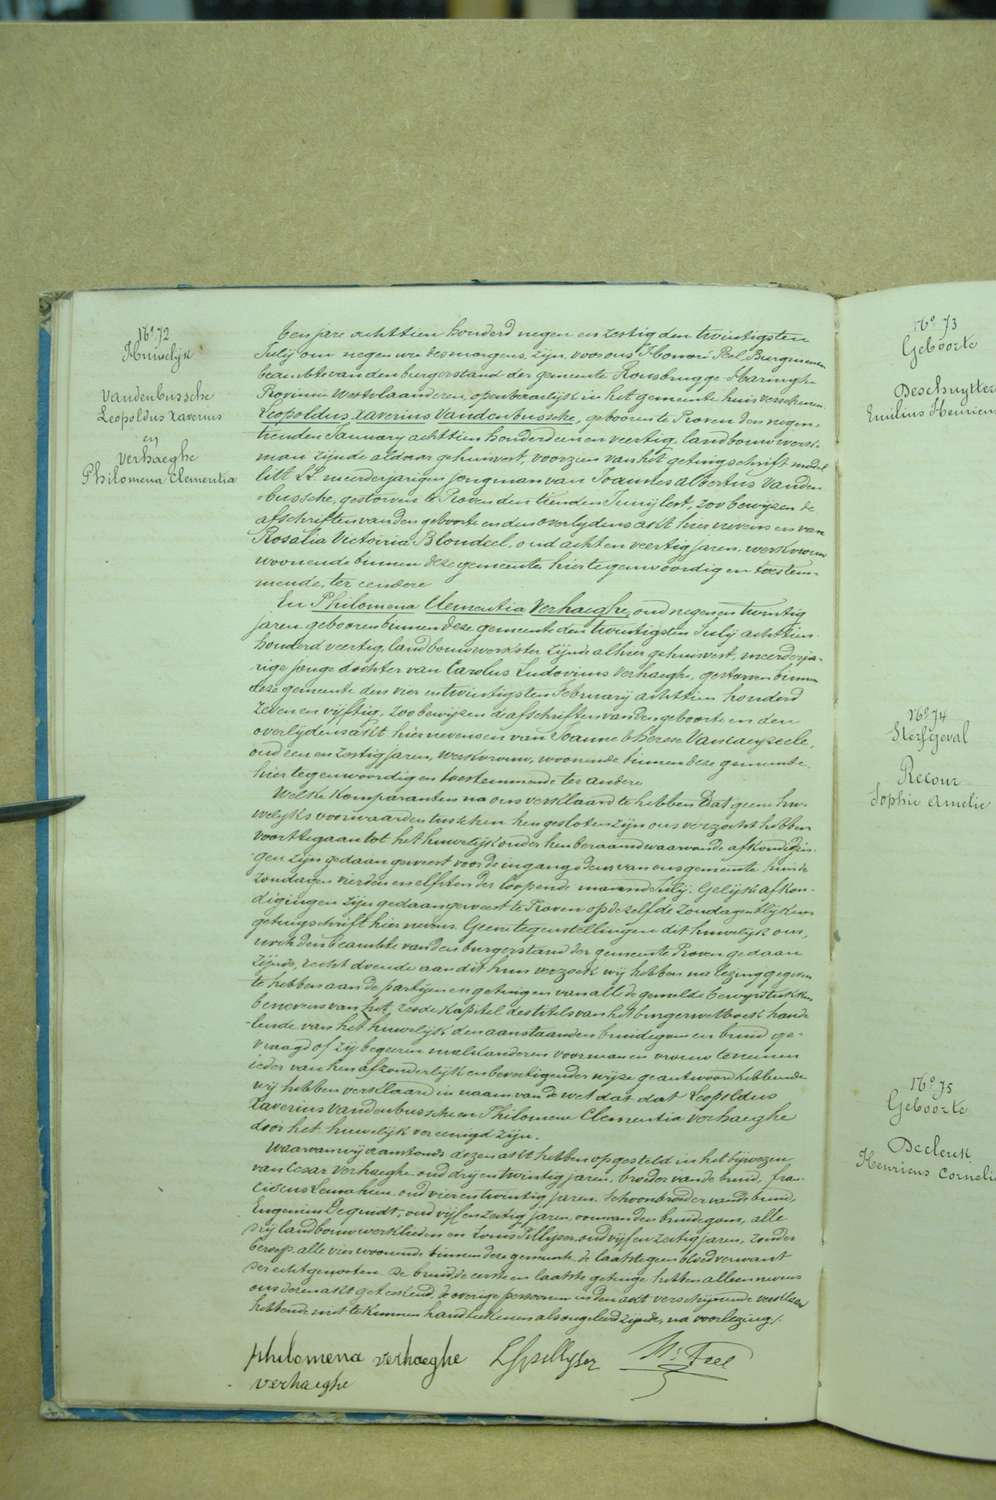 N° 72
Huwelijk
Vandenbussche
Leopoldus Xaverius
en
Verhaeghe
Philomena Clementia
Ten jare achttien honderd negen en zestig den twintigsten
Julij om negen ure des morgens, zijn voor ons Honoré Bergmeune
beambte van den burgerstand der gemeente Rousbrugge-Haringhe
Provincie Westvlaanderen, openbaarlijk in het gemeente huis verschenen
Leopoldus Xaverius Vandenbussche, geboren te Proven den negen-
tienden January achttien honderd een en veertig, landbouw werk-
man zijnde aldaar gehuisvest, voorzien van het getuigschrift model
litt. meerderjarigen jongman van Joannes Albertus Vanden-
bussche, gestorven te Proven den tienden Junij lest, zoo bewijzen de
afschriften van den geboorte en den overlijdens akt hier nevens en van
Rosalia Victoiria Blondeel, oud acht en veertig jaren, werkvrouw
woonende binnen deze gemeente hier tegenwoordig en toestem-
mende, ter eendere
En Philomena Clementia Verhaeghe, oud negen en twintig
jaren geboren binnen deze gemeente den twintigsten Julij achttien
honderd veertig, landbouwwerkster zijnde alhier gehuisvest, meerderja-
rige jonge dochter van Carolus Ludovicus Verhaeghe, gestorven binnen
deze gemeente den vier en twintigsten February achttien honderd
zeven en vijftig, zoo bewijzen de afschriften van den geboorte en den
overlijdens akt hier nevens en van Joanne Therese Vancayseele,
oud een en zestig jaren, werkvrouw, woonende binnen deze gemeente,
hier tegenwoordig en toestemmende ter andere
Welke Komparanten na ons verklaard te hebben dat geene hu-
welijks voorwaarden tusschen hen gesloten zijn ons verzocht hebben
voorttegaan tot het huwelijk onder hen beraamd waarvan de afkondigin-
gen zijn gedaan geweest voor de ingangdeur van ons gemeente huis de
zondagen vierden en elfsten der loopende maand Julij. Gelijke afkon-
digingen zijn gedaan geweest te Proven op dezelfde zondagen blijkens
getuigschrift hier nevens. Geene tegenstellingen dit huwelijk ons,
noch den beambte van den burgerstand der gemeente Proven gedaan
zijnde, recht doende aan dit hun verzoek wij hebben na lezing gegeven
te hebben aan de partijen en getuigen van all de gemelde bewijsstukken
benevens van het zesde kapitel des titels van het burgerwetboek hande-
lende van het huwelijk den aanstaanden bruidegom en bruid ge-
vraagd of zij begeeren malkanderen voor man en vrouw te nemen
ieder van hen afzonderlijk en bevestigender wijze geantwoord hebbende
wij hebben verklaard in naam van de wet dat dat Leopoldus
Xaverius Vandenbussche en Philomena Clementia Verhaeghe
door het huwelijk vereenigd zijn.
Waarvan wij dezen akt hebben opgesteld in het bijwezen
van Cesar Verhaeghe oud drij en twintig jaren, broeder van de bruid, fran-
ciscus Lemahieu, oud vier en twintig jaren, schoonbroeder van de bruid,
Eugenius Dequidt, oud vijf en zestig jaren, oom van den bruidegom, alle
drij landbouw werklieden en Louis Tillyser, oud vijf en zestig jaren, zonder
beroep, alle vier woonende binnen deze gemeente de laatste geen bloedverwant
der echtgenooten. De bruid de eerste en laatste getuige hebben alleen nevens
ons dezen akt geteekend, de overige persoonen in den akt verschijnende verklaard
hebbende niet te kunnen handteekenen als ongeleerd zijnde, na voorlezing.
philomena verhaeghe
verhaeghe
N° 73
Geboorte
Deschuytter
Emilius Henricus
N° 74
Sterfgeval
Recour
Sophie Amelie
N° 75
Geboorte
Declerck
Henricus Corneli